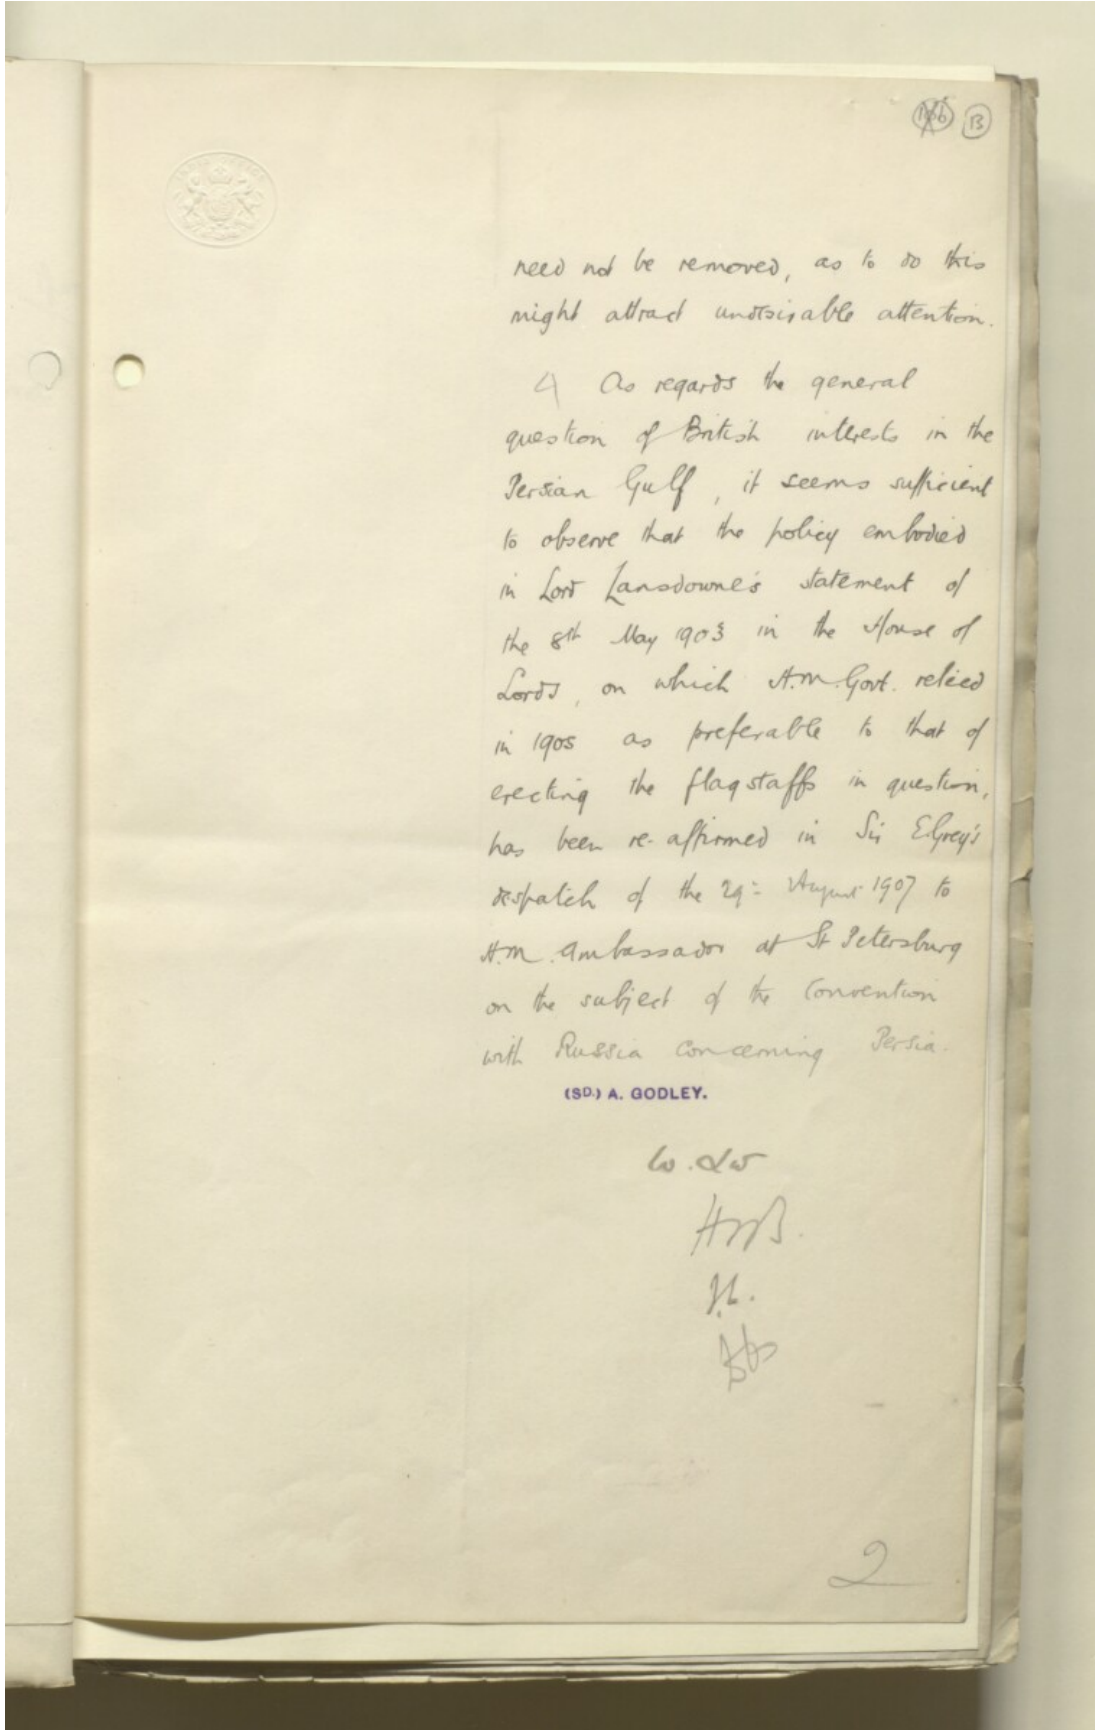 13
need not be removed, as to do this
might attract undesirable attention.
4 As regards the general
question of British interests in the
Persian Gulf, it seems sufficient
to observe that the policy embodied
in Lord Lansdowne's statement of
the 8th May 1903 in the House of
Lords, on which H.M. Govt. relied
in 1905 as preferable to that of
erecting the flagstaffs in question,
has been re-affirmed in Sir E. Grey's
despatch of the 29th August 1907 to
H.M. Ambassador at St Petersburg
on the subject of the Convention
with Russia concerning Persia.
(SD.) A. GODLEY.
2